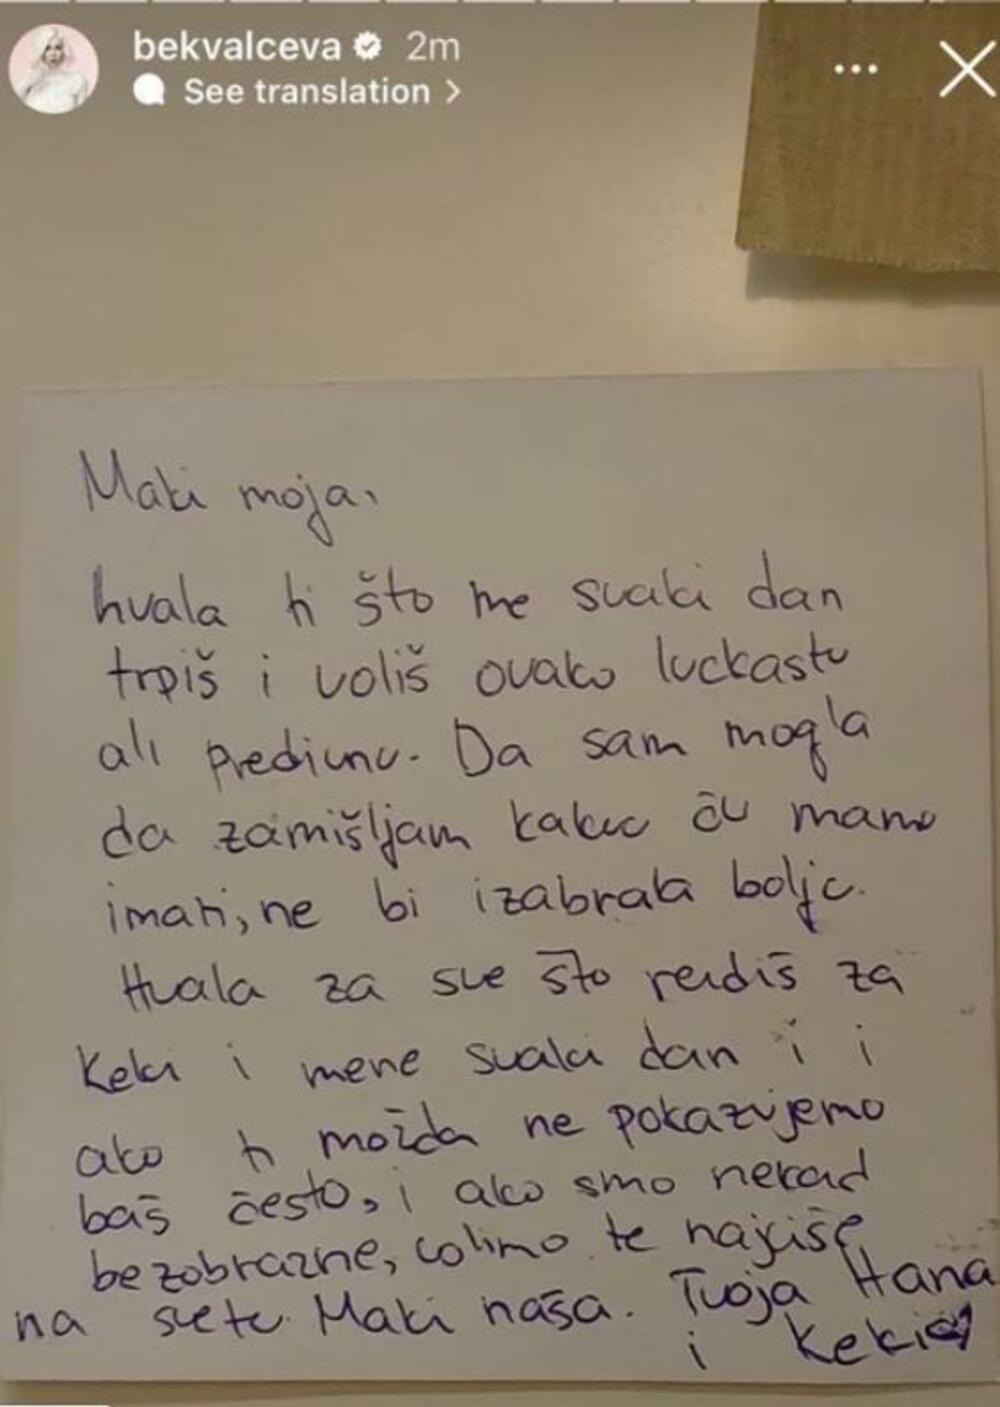 bekvalceva 2m
See translation >
Maki moja,
hvala ti što me svaki dan
trpiš i voliš ovako luckastu
ali predivnu. Da sam mogla
da zamišljam kakvu ću mamu
imati, ne bi izabrala bolju.
Hvala za sve što radiš za
Keki i mene svaki dan i i
ako ti možda ne pokazujemo
baš često, i ako smo nekad
bezobrazne, volimo te najviše
na svetu Maki naša. Tvoja Hana
i Keki